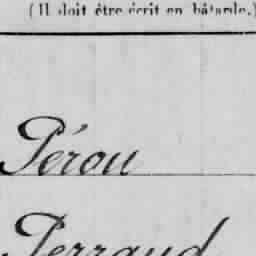 (Il doit être écrit en bâtarde.)
Pérou
Perraud